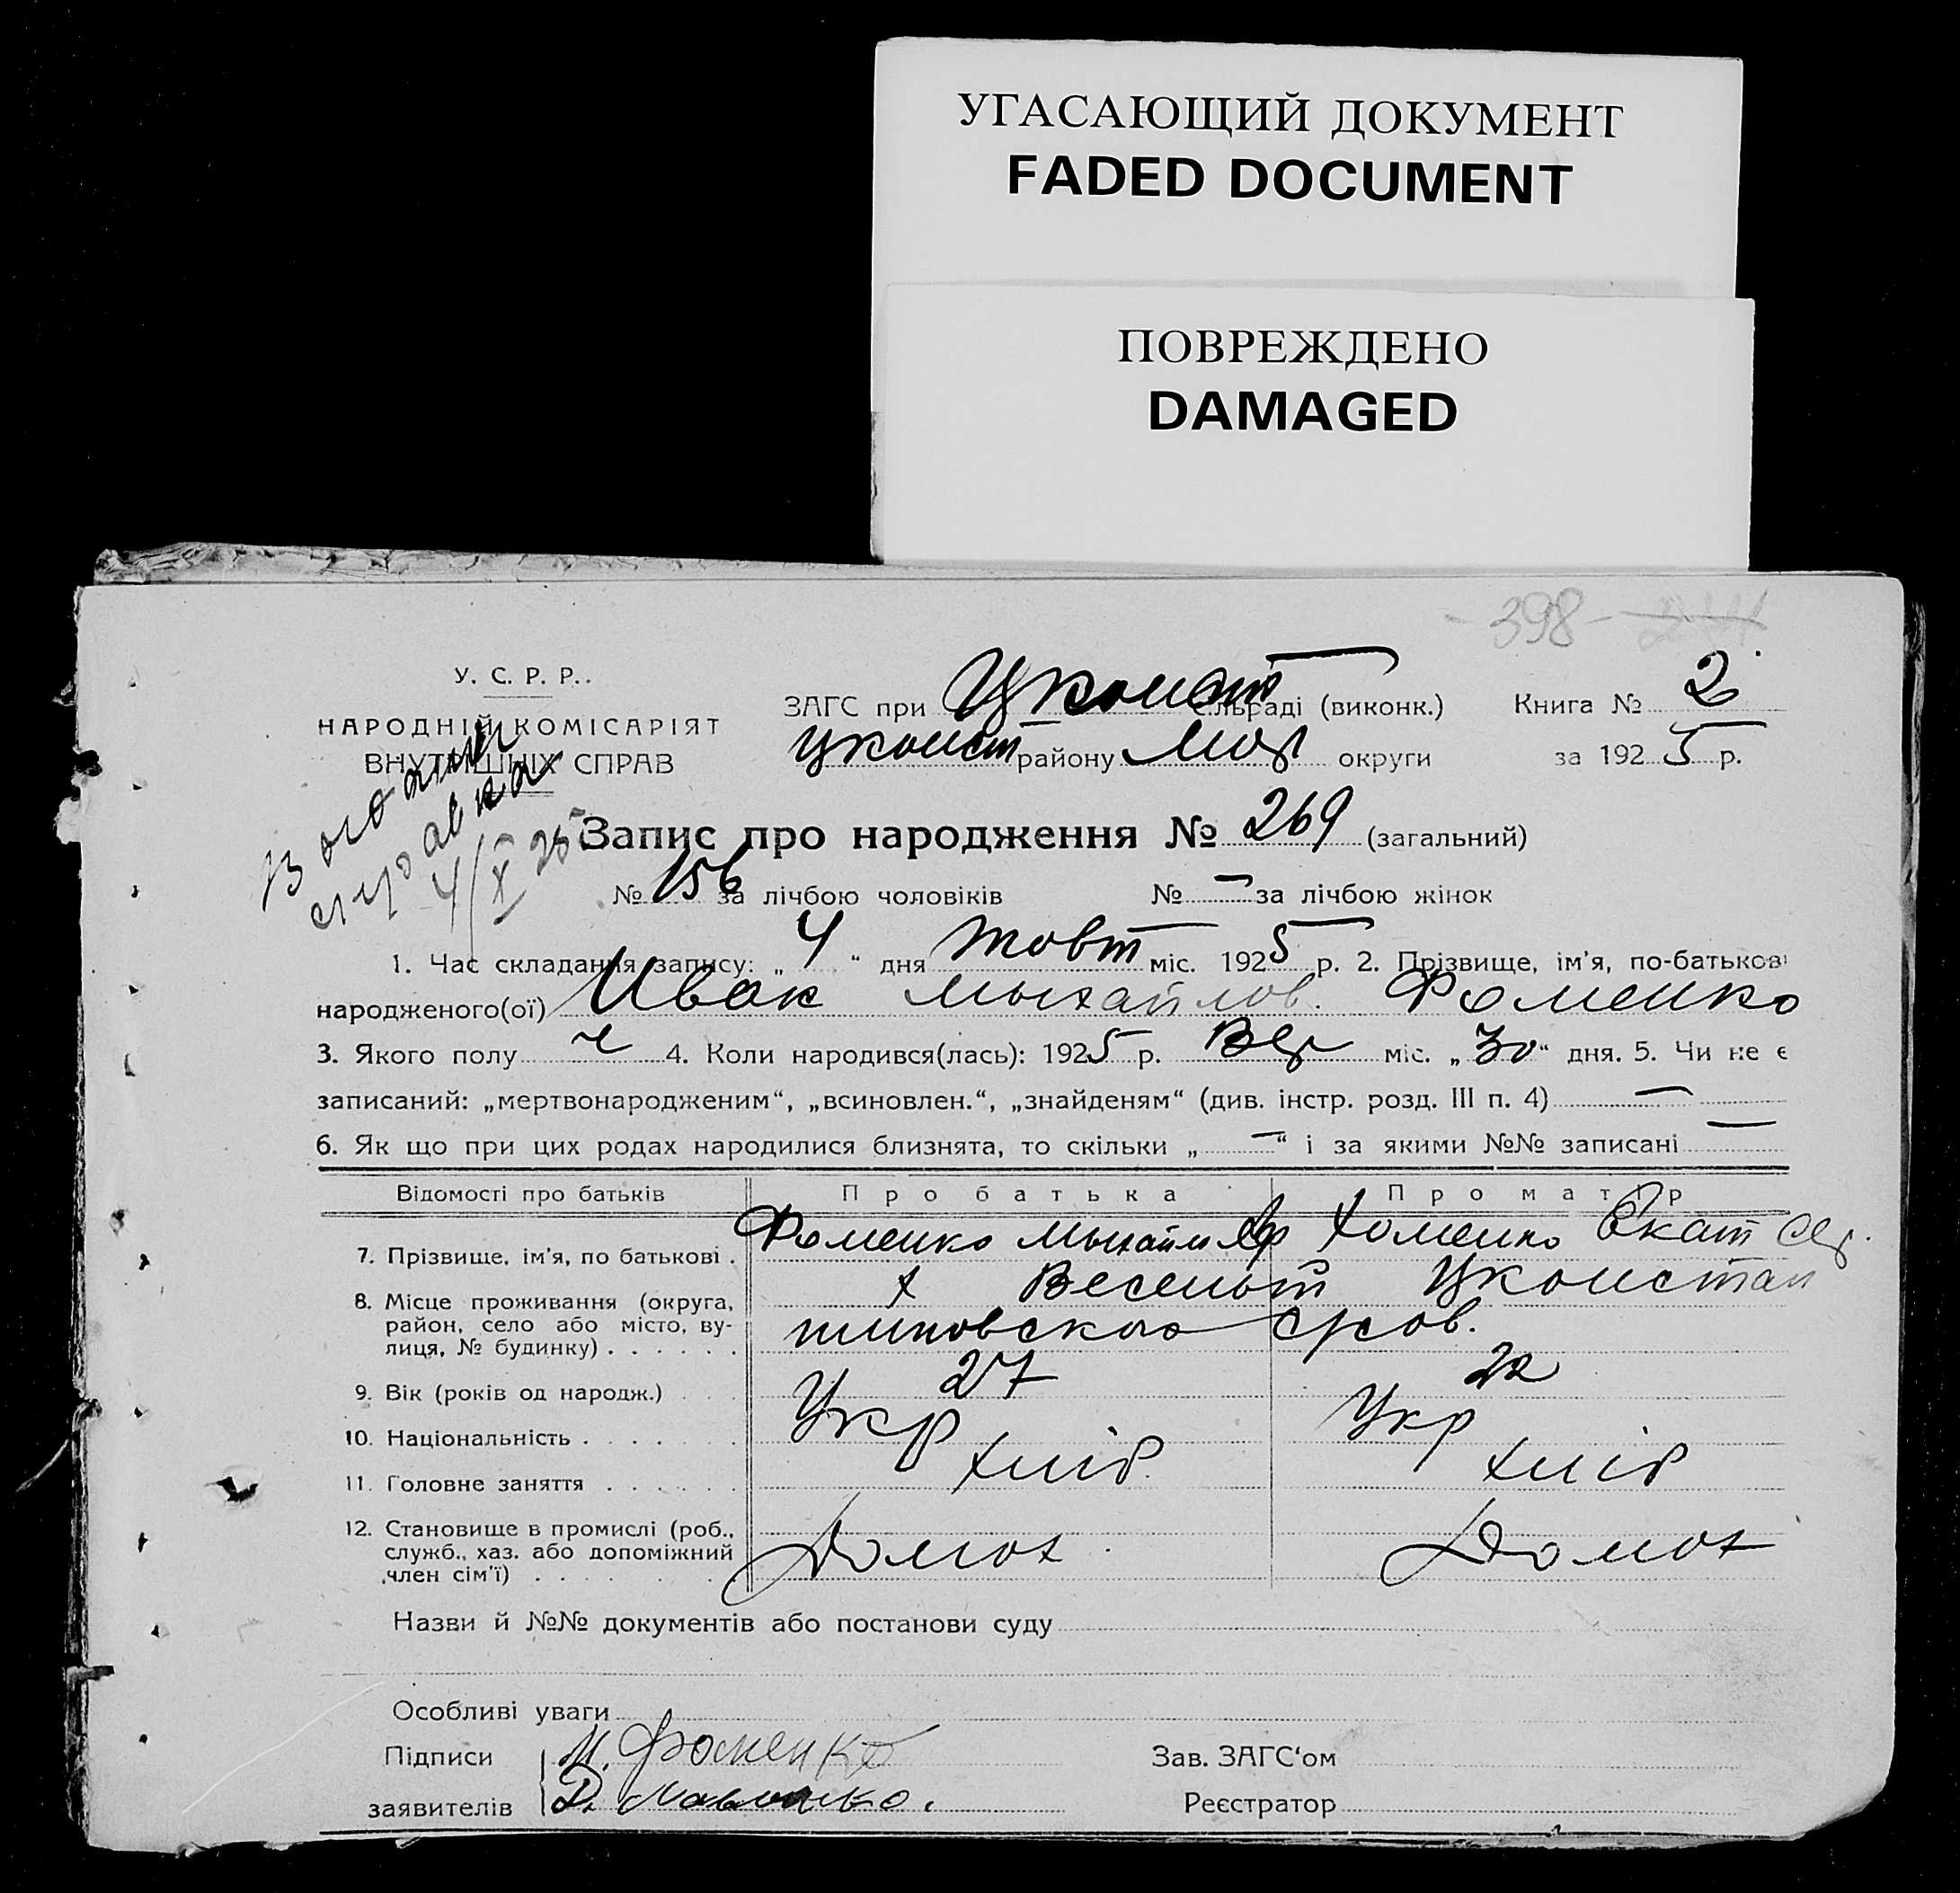 УГАСАЮЩИЙ ДОКУМЕНТ
FADED DOCUMENT
ПОВРЕЖДЕНО
DAMAGED
- 398 -
У. С. Р. Р.
НАРОДНІЙ КОМІСАРІЯТ
ВНУТРІШНІХ СПРАВ
ЗАГС при Цконст сільраді (виконк.) Книга № 2
Цконст району округи за 1925 р.
справка
4/X 25
Запис про народження № 269 (загальний)
№ 156 за лічбою чоловіків № — за лічбою жінок
1. Час складання запису: „ 4 “ дня жовт міс. 1925 р. 2. Прізвище, ім'я, по-батькові
народженого(ої) Иван Мыхайлов. Фоменко
3. Якого полу ч 4. Коли народився(лась): 1925 р. Вер міс. „ 30 “ дня. 5. Чи не є
записаний: „мертвонародженим“, „всиновлен.“, „знайденям“ (див. інстр. розд. III п. 4) —
6. Як що при цих родах народилися близнята, то скільки „ — “ і за якими №№ записані —
Відомості про батьків Про батька Про матір
7. Прізвище, ім'я, по батькові . Фоменко Мыхайл Хоменко Екат
8. Місце проживання (округа, х Весельій Цконстан
район, село або місто, ву- тиновскоо
лиця, № будинку) . . . . . .
9. Вік (років од народж.) . . . 27 22
10. Національність . . . . . . . Укр Укр
11. Головне заняття . . . . . . хліб. хліб
12. Становище в промислі (роб., Домох Домох
служб., хаз. або допоміжний
член сім'ї) . . . . . . .
Назви й №№ документів або постанови суду
Особливі уваги
Підписи М. Фоменко Зав. ЗАГС'ом
заявителів Реєстратор